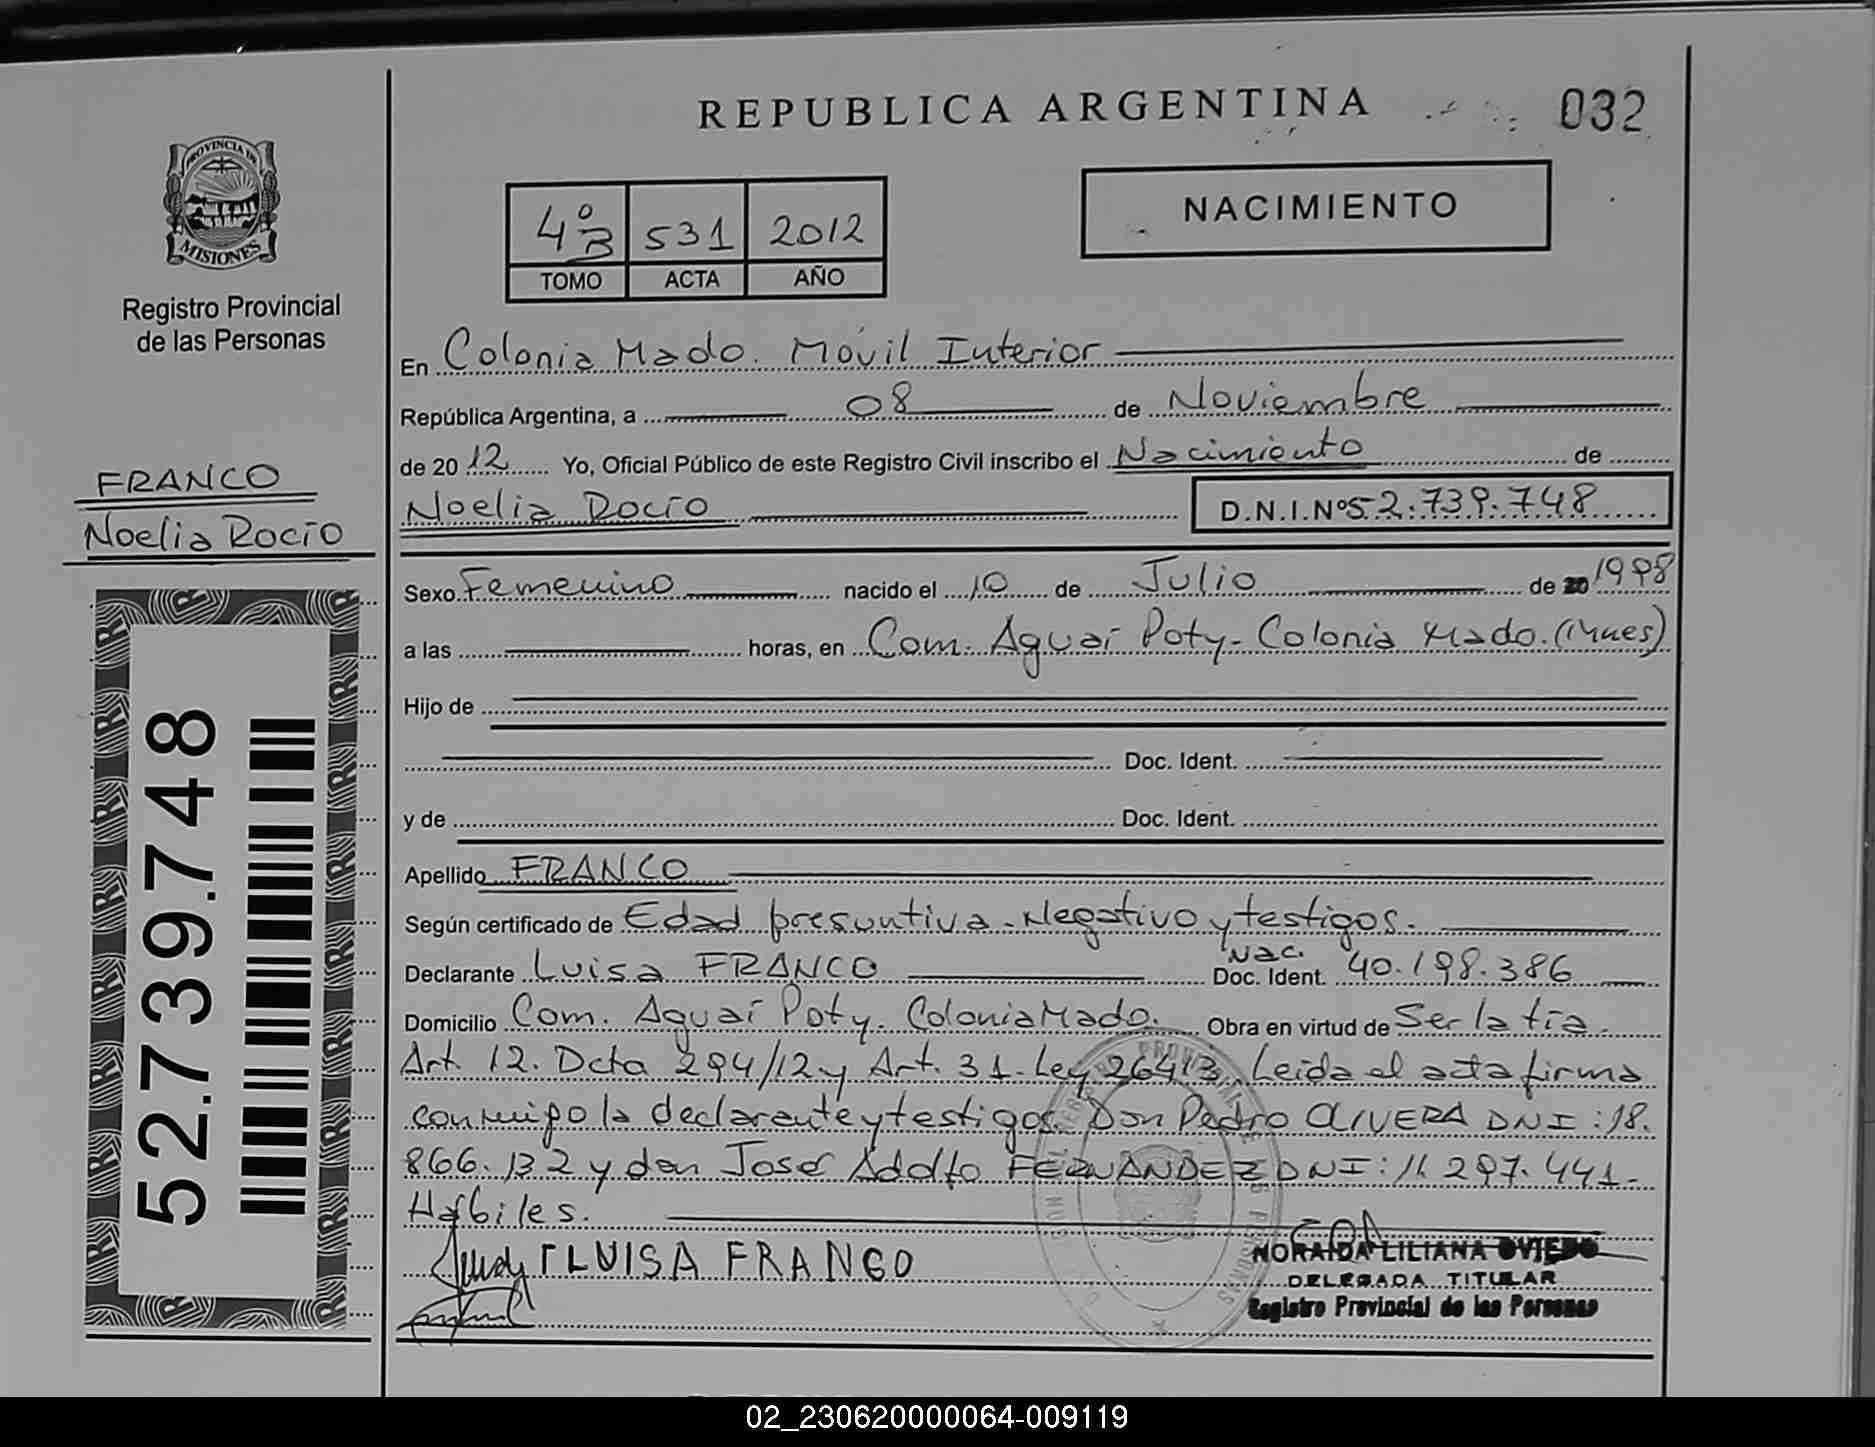 REPUBLICA ARGENTINA
032
PROVINCIA DE
MISIONES
Registro Provincial
de las Personas
4º B 531 2012
TOMO ACTA AÑO
NACIMIENTO
En Colonia Mado. Móvil Interior
República Argentina, a 08 de Noviembre
de 20 12 Yo, Oficial Público de este Registro Civil inscribo el Nacimiento de
Noelia Rocío D.N.I.Nº 52.739.748
FRANCO
Noelia Rocío
Sexo Femenino nacido el 10 de Julio de 20 1998
a las horas, en Com. Aguaí Poty - Colonia Mado. (Mnes)
Hijo de
Doc. Ident.
y de Doc. Ident.
Apellido FRANCO
Según certificado de Edad presuntiva - Negativo y testigos.
Declarante Luisa FRANCO Nac. Doc. Ident. 40.198.386
Domicilio Com. Aguaí Poty. Colonia Mado. Obra en virtud de Ser la tía.
Art. 12. Dcto 294/12 y Art. 31 - Ley 26413. Leída el acta firma
conmigo la declarante y testigos. Don Pedro OLIVERA DNI: 18.
866.132 y don José Adolfo FERNANDEZ DNI: 11.297.441-
Hábiles.
LUISA FRANCO
NORAIDA LILIANA OVIEDO
DELEGADA TITULAR
Registro Provincial de las Personas
52.739.748
02_230620000064-009119